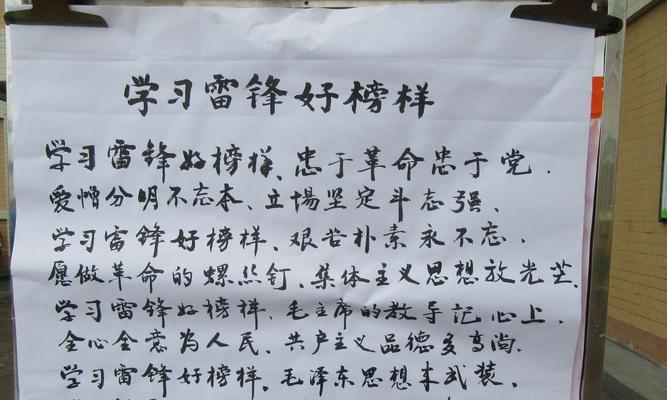 学习雷锋好榜样
学习雷锋好榜样、忠于革命忠于党.
爱憎分明不忘本、立場坚定斗志强、
学习雷锋好榜样、艰苦朴素永不忘、
愿做革命的螺丝钉、集体主义思想放光芒.
学习雷锋好榜样、毛主席的教导记心上.
全心全意为人民、共产主义品德多高尚.
学习雷锋好榜样、毛泽东思想来武装、